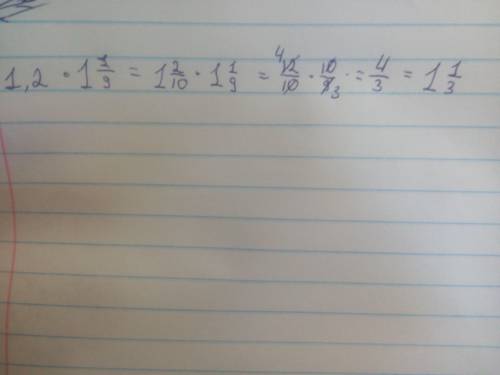 1,2 · 1 1/9 = 1 2/10 · 1 1/9 = 4 12/10 · 10/9 3 = 4/3 = 1 1/3